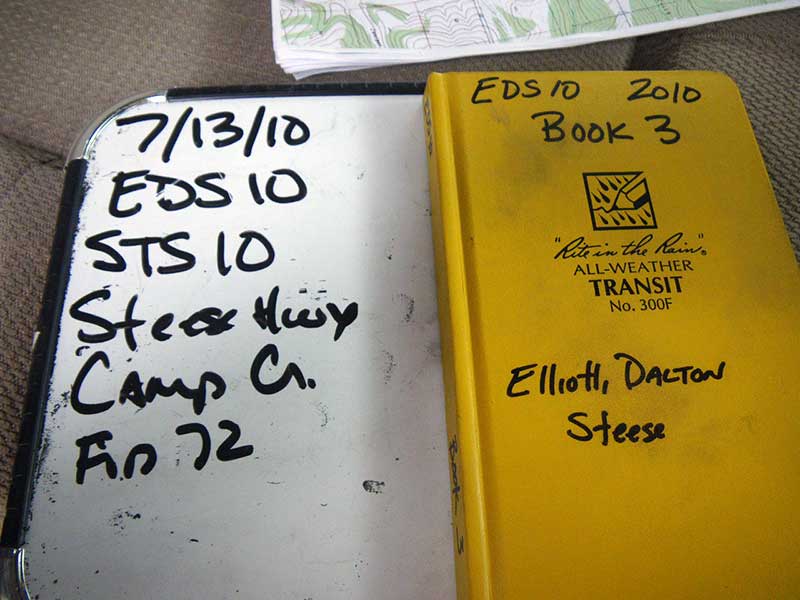 7/13/10
EDS 10
STS 10
Steese Hwy
Camp Cr.
72
EDS 10 2010
Book 3
"Rite in the Rain"®
ALL-WEATHER
TRANSIT
No. 300F
Elliott, DALTON
Steese